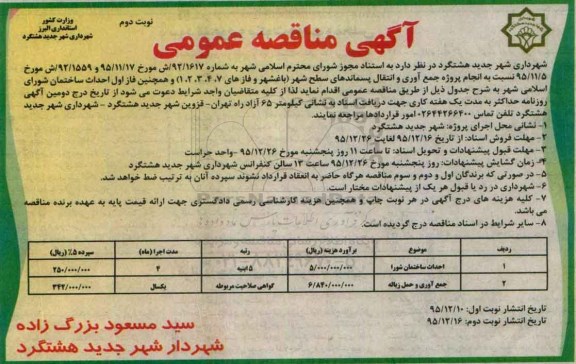 نوبت دوم
وزارت کشور
استانداری البرز
شهرداری شهر جدید هشتگرد
آگهی مناقصه عمومی
شهرداری شهر جدید هشتگرد در نظر دارد به استناد مجوز شورای محترم اسلامی شهر به شماره ۹۲/۱۶۱۷/ش مورخ ۹۵/۱۱/۱۷ و ۹۲/۱۵۵۹/ش مورخ
۹۵/۱۱/۵ نسبت به انجام پروژه جمع آوری و انتقال پسماندهای سطح شهر (باغشهر و فاز های ۷، ۴، ۳، ۲، ۱) و همچنین فاز اول احداث ساختمان شورای
اسلامی شهر به شرح جدول ذیل از طریق مناقصه عمومی اقدام نماید لذا از کلیه متقاضیان واجد شرایط دعوت می شود از تاریخ درج دومین آگهی
روزنامه حداکثر به مدت یک هفته کاری جهت دریافت اسناد به نشانی کیلومتر ۶۵ آزاد راه تهران - قزوین شهر جدید هشتگرد - شهرداری شهر جدید
هشتگرد تلفن تماس ۰۲۶۴۴۲۶۶۴۰۰ امور قراردادها مراجعه نمایند.
۱- نشانی محل اجرای پروژه: شهر جدید هشتگرد
۲- مهلت فروش اسناد: از تاریخ ۹۵/۱۲/۱۶ لغایت ۹۵/۱۲/۲۶
۳- مهلت قبول پیشنهادات و تحویل اسناد: تا ساعت ۱۱ روز پنجشنبه مورخ ۹۵/۱۲/۲۶ -واحد حراست
۴- زمان گشایش پیشنهادات: روز پنجشنبه مورخ ۹۵/۱۲/۲۶ ساعت ۱۳ سالن کنفرانس شهرداری شهر جدید هشتگرد
۵- در صورتی که برندگان اول و دوم و سوم مناقصه هرگاه حاضر به انعقاد قرارداد نشوند سپرده آنان به ترتیب ضبط خواهد شد.
۶- شهرداری در رد یا قبول هر یک از پیشنهادات مختار است.
۷- کلیه هزینه های درج آگهی در هر نوبت چاپ و همچنین هزینه کارشناسی رسمی دادگستری جهت ارائه قیمت پایه به عهده برنده مناقصه
می باشد.
۸- سایر شرایط در اسناد مناقصه درج گردیده است.
ردیف موضوع برآورد هزینه (ریال) رتبه مدت اجرا (ماه) سپرده ۵٪ (ریال)
۱ احداث ساختمان شورا ۵/۰۰۰/۰۰۰/۰۰۰ ۵ ابنیه ۴ ۲۵۰/۰۰۰/۰۰۰
۲ جمع آوری و حمل زباله ۶/۸۴۰/۰۰۰/۰۰۰ گواهی صلاحیت مربوطه یکسال ۳۴۲/۰۰۰/۰۰۰
تاریخ انتشار نوبت اول: ۹۵/۱۲/۱۰
تاریخ انتشار نوبت دوم: ۹۵/۱۲/۱۶
سید مسعود بزرگ زاده
شهردار شهر جدید هشتگرد